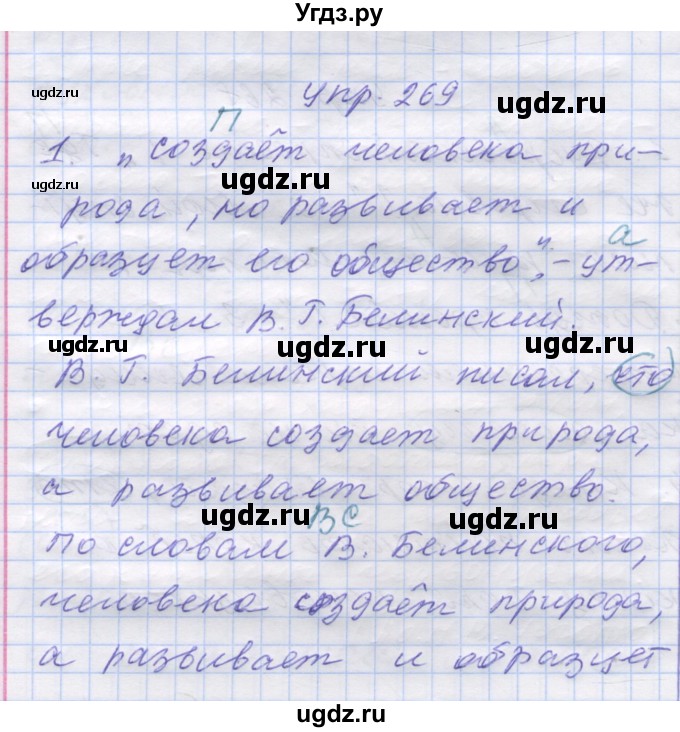 Угдз.ру
ugdz.ru
Упр. 269
ugdz.ru
П
1. „Создаёт человека при-
ugdz.ru
ugdz.ru
рода, но развивает и
а
образует его общество", - ут-
верждал В. Г. Белинский.
ugdz.ru
ugdz.ru
В. Г. Белинский писал, что
человека создает природа,
а развивает общество.
ugdz.ru
ВС
ugdz.ru
По словам В. Белинского,
человека создаёт природа,
ugdz.ru
а развивает и образует
ugdz.ru
ugdz.ru